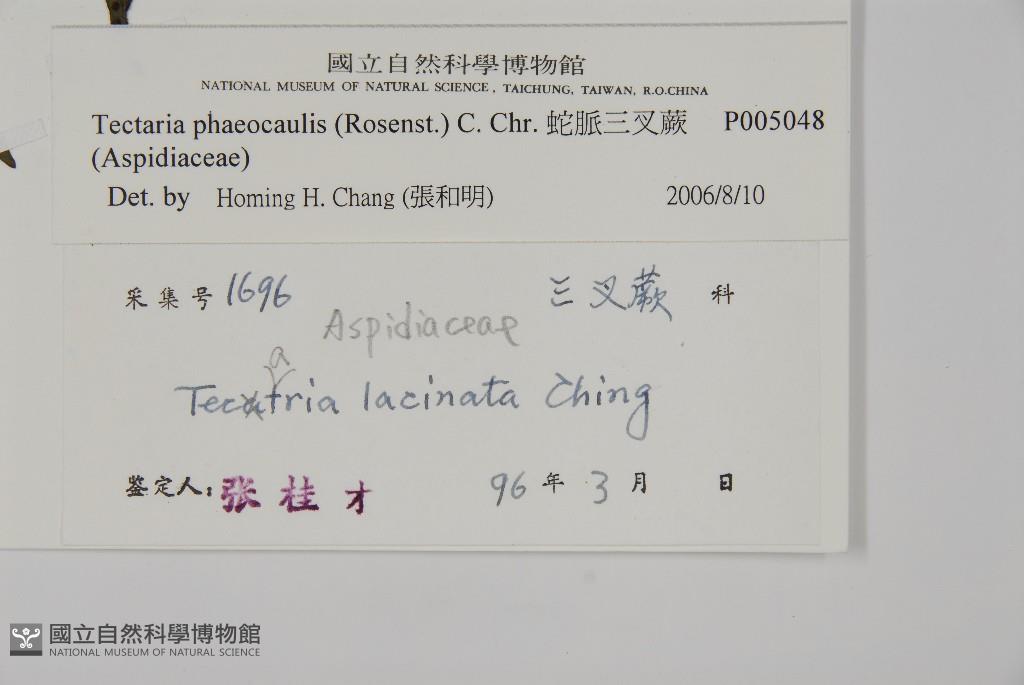 國立自然科學博物館
NATIONAL MUSEUM OF NATURAL SCIENCE, TAICHUNG, TAIWAN, R.O.CHINA
Tectaria phaeocaulis (Rosenst.) C. Chr. 蛇脈三叉蕨 P005048
(Aspidiaceae)
Det. by Homing H. Chang (張和明) 2006/8/10
采集号 1696 三叉蕨 科
Aspidiaceae
a
Tecatria lacinata Ching
鉴定人: 张桂才 96 年 3 月 日
國立自然科學博物館
NATIONAL MUSEUM OF NATURAL SCIENCE